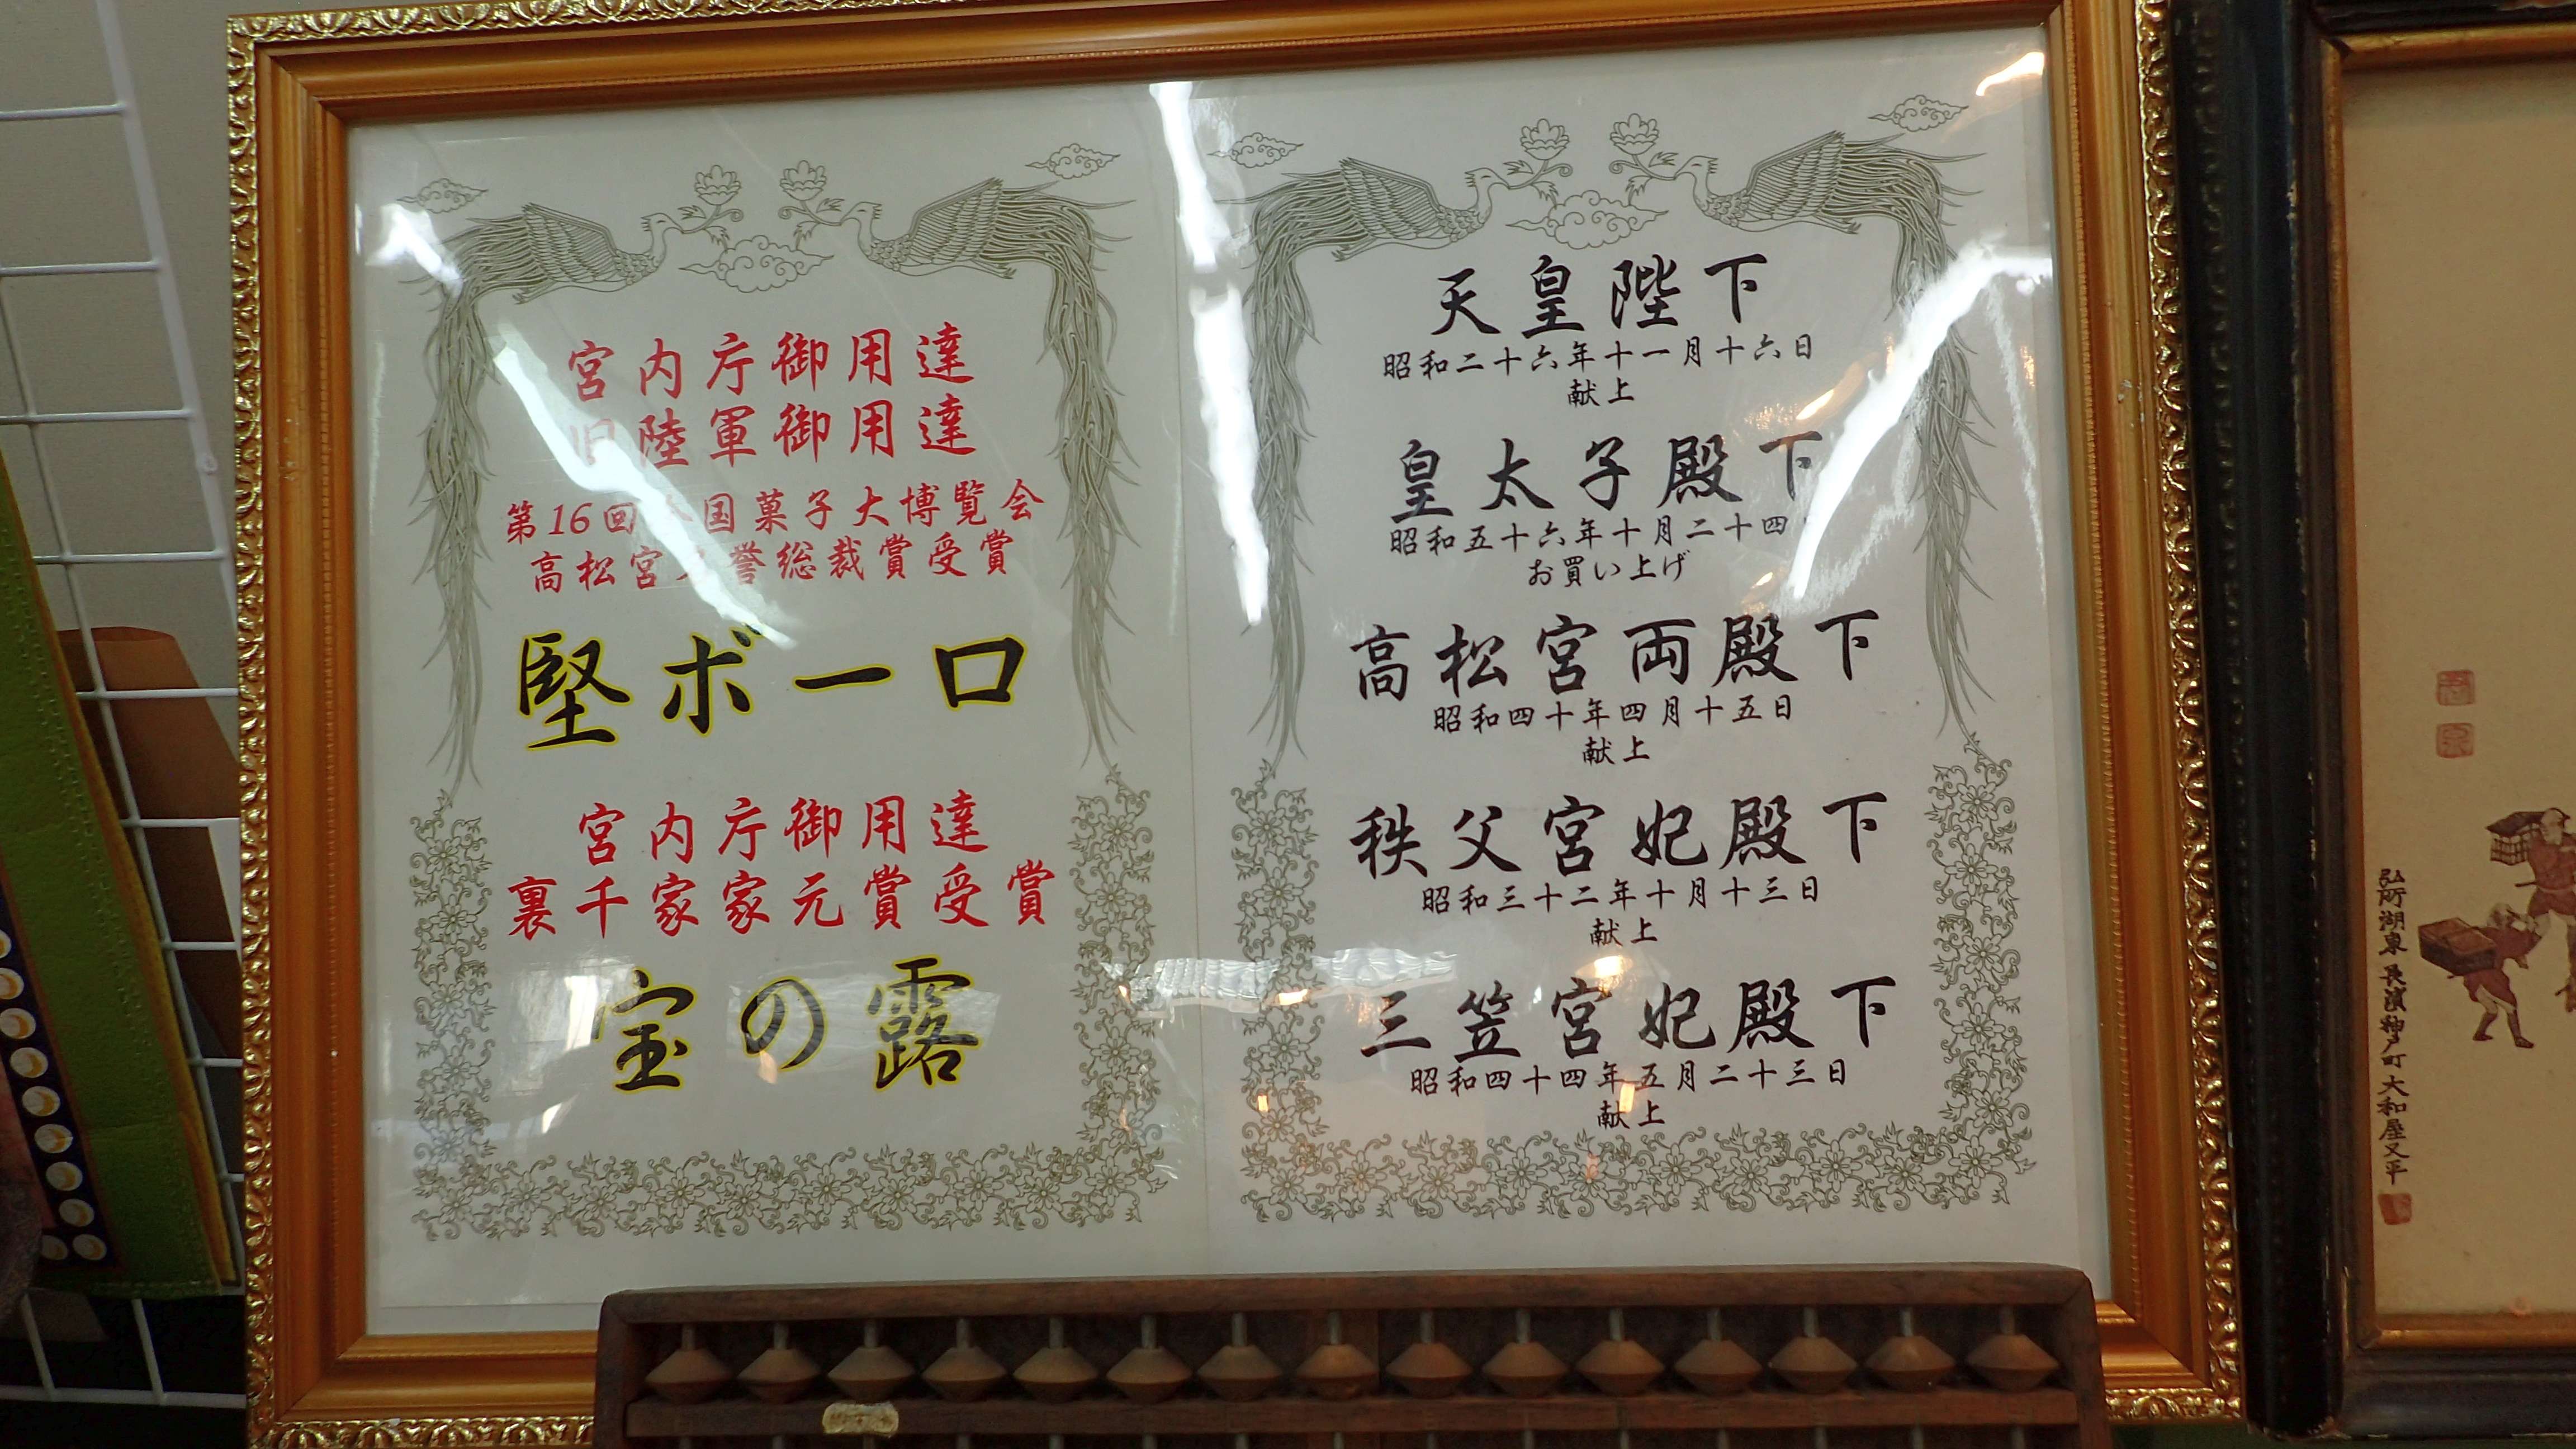 宮内庁御用達
旧陸軍御用達
第16回全国菓子大博覧会
高松宮名誉総裁賞受賞
堅ボーロ
宮内庁御用達
裏千家家元賞受賞
宝の露
天皇陛下
昭和二十六年十一月十六日
献上
皇太子殿下
昭和五十六年十月二十四
お買い上げ
高松宮両殿下
昭和四十年四月十五日
献上
秩父宮妃殿下
昭和三十二年十月十三日
献上
三笠宮妃殿下
昭和四十四年五月二十三日
献上
湖東 長濱神戸町 大和屋又平